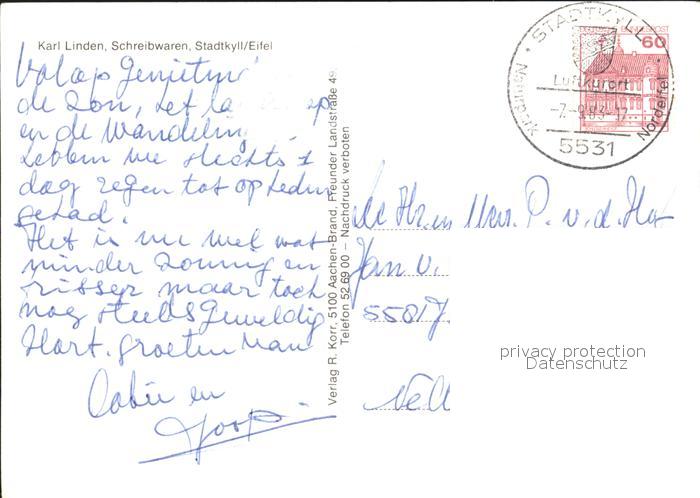 Karl Linden, Schreibwaren, Stadtkyll/Eifel
Volop Genieten
de Zon, het
en de Wandeling
hebben we slechts 1
dag regen tot op heden
gehad.
Het is nu wel wat
minder zonnig en
frisser maar toch
nog steeds Geweldig
Hart. groeten van
en
Joop.
Verlag R. Korr, 5100 Aachen-Brand, Freunder Landstraße 49
Telefon 52 69 00 – Nachdruck verboten
STADTKYLL
Luftkurort
Nordeifel
5531
60
de Hr. en Mevr. P. v. d.
Jan v.
privacy protection
Datenschutz